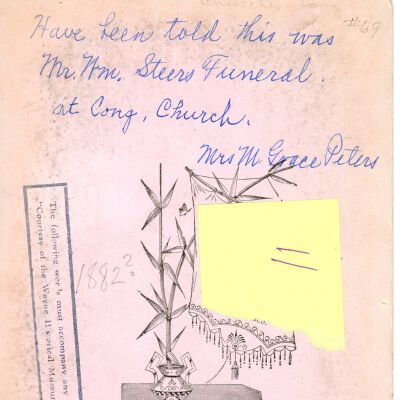 #69
Have been told this was
Mr. Wm. Steers Funeral.
at Cong. Church.
Mrs M. Grace Peters
1882?
The following words must accompany any
"Courtesy of the Wayne Historical Museum